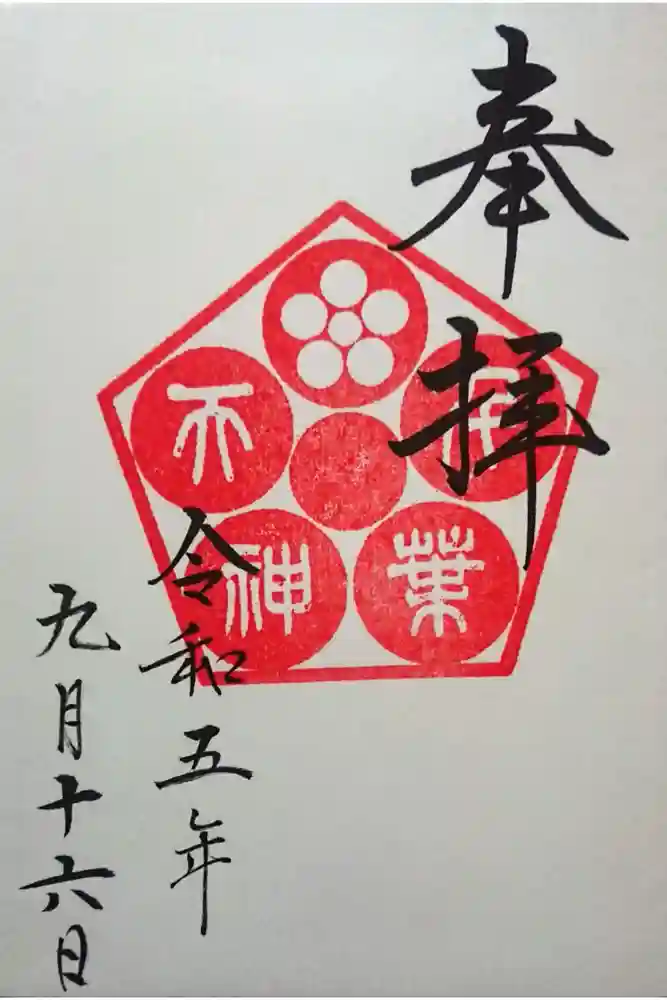 奉拝
千葉
天神
令和五年
九月十六日